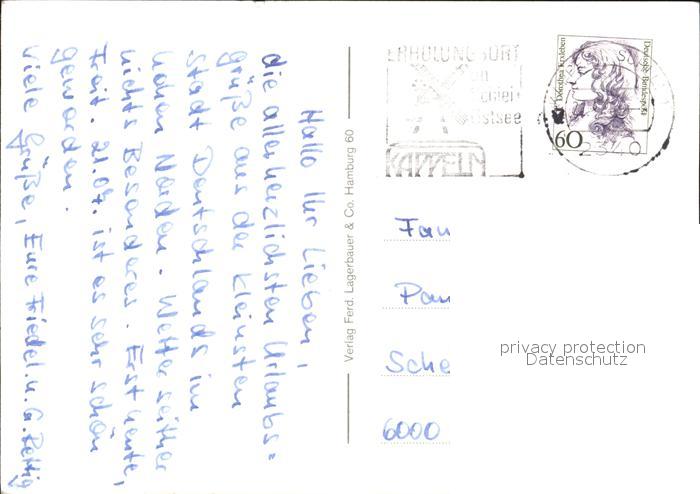 Hallo Ihr Lieben,
die allerherzlichsten Urlaubs=
grüße aus der kleinsten
Stadt Deutschlands im
hohen Norden. Wetter seither
nichts Besonderes. Erst heute,
Freit. 21.07. ist es sehr schön
geworden.
Viele Grüße, Eure Friedel u. G. Rettig
Verlag Ferd. Lagerbauer & Co. Hamburg 60
ERHOLUNGSORT
Ostsee
KAPPELN
Dorothea Erxleben
Deutsche Bundespost
60
2340
Fam
Pau
Sche
6000
privacy protection
Datenschutz